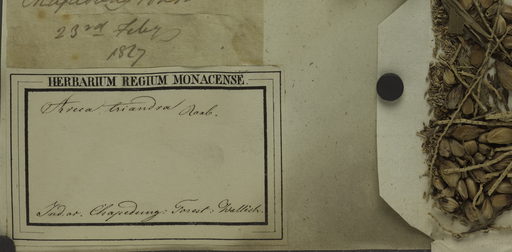 23rd Feby
1827
HERBARIUM REGIUM MONACENSE.
Areca triandra Roxb.
Ind. or. Chapedung: Forest: Wallich.